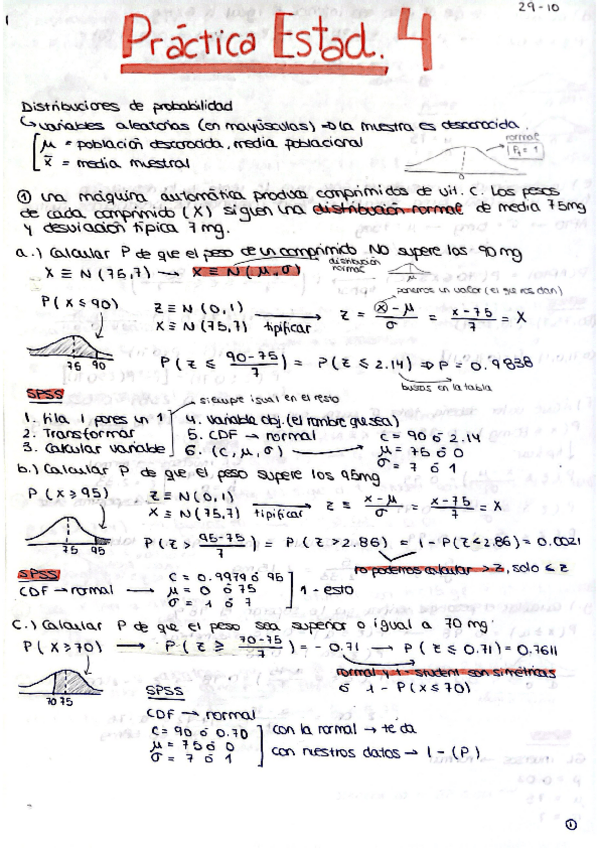 29-10
Práctica Estad. 4
Distribuciones de probabilidad
↳ variables aleatorias (en mayúsculas) ⇒ la muestra es desconocida.
μ = población desconocida, media poblacional
x̄ = media muestral
normal
P = 1
0
① Una máquina automática produce comprimidos de vit. C. Los pesos
de cada comprimido (X) siguen una distribución normal de media 75mg
y desviación típica 7 mg.
a.) Calcular P de que el peso de un comprimido NO supere los 90 mg
X ≡ N (75,7) → X ≡ N (μ, σ) distribución normal
ponemos un valor (el que nos dan)
P (X ≤ 90)
Z ≡ N (0,1)
X ≡ N (75,7) tipificar → Z = (x) - μ / σ = x-75 / 7 = X
75 90
P ( Z ≤ 90-75 / 7 ) = P (Z ≤ 2.14) ⇒ P = 0.9838
buscas en la tabla
SPSS
siempre igual en el resto
1. Fila 1 pones un 1
2. Transformar
3. Calcular variable
4. Variable obj. (el nombre que sea)
5. CDF → normal
6. (C, μ, σ)
C = 90 ó 2.14
μ = 75 ó 0
σ = 7 ó 1
b.) Calcular P de que el peso supere los 95mg
P (X ≥ 95)
Z ≡ N (0,1)
X ≡ N (75,7) tipificar → Z = x-μ / σ = x-75 / 7 = X
75 95
P ( Z > 95-75 / 7 ) = P ( Z > 2.86) = 1 - P(Z ≤ 2.86) = 0.0021
no podemos calcular > z, solo ≤ z
SPSS
CDF → normal →
C = 0.9979 ó 95
μ = 0 ó 75
σ = 1 ó 7
1 - esto
C.) Calcular P de que el peso sea superior o igual a 70 mg
P ( X ≥ 70) → P ( Z ≥ 70-75 / 7 ) = - 0.71 → P ( Z ≤ 0.71) = 0.7611
normal y t-student son simétricas
ó 1 - P (X ≤ 70)
70 75
SPSS
CDF → normal
C = 90 ó 0.70
μ = 75 ó 0
σ = 7 ó 1
con la normal → te da
con nuestros datos → 1 - (P)
①